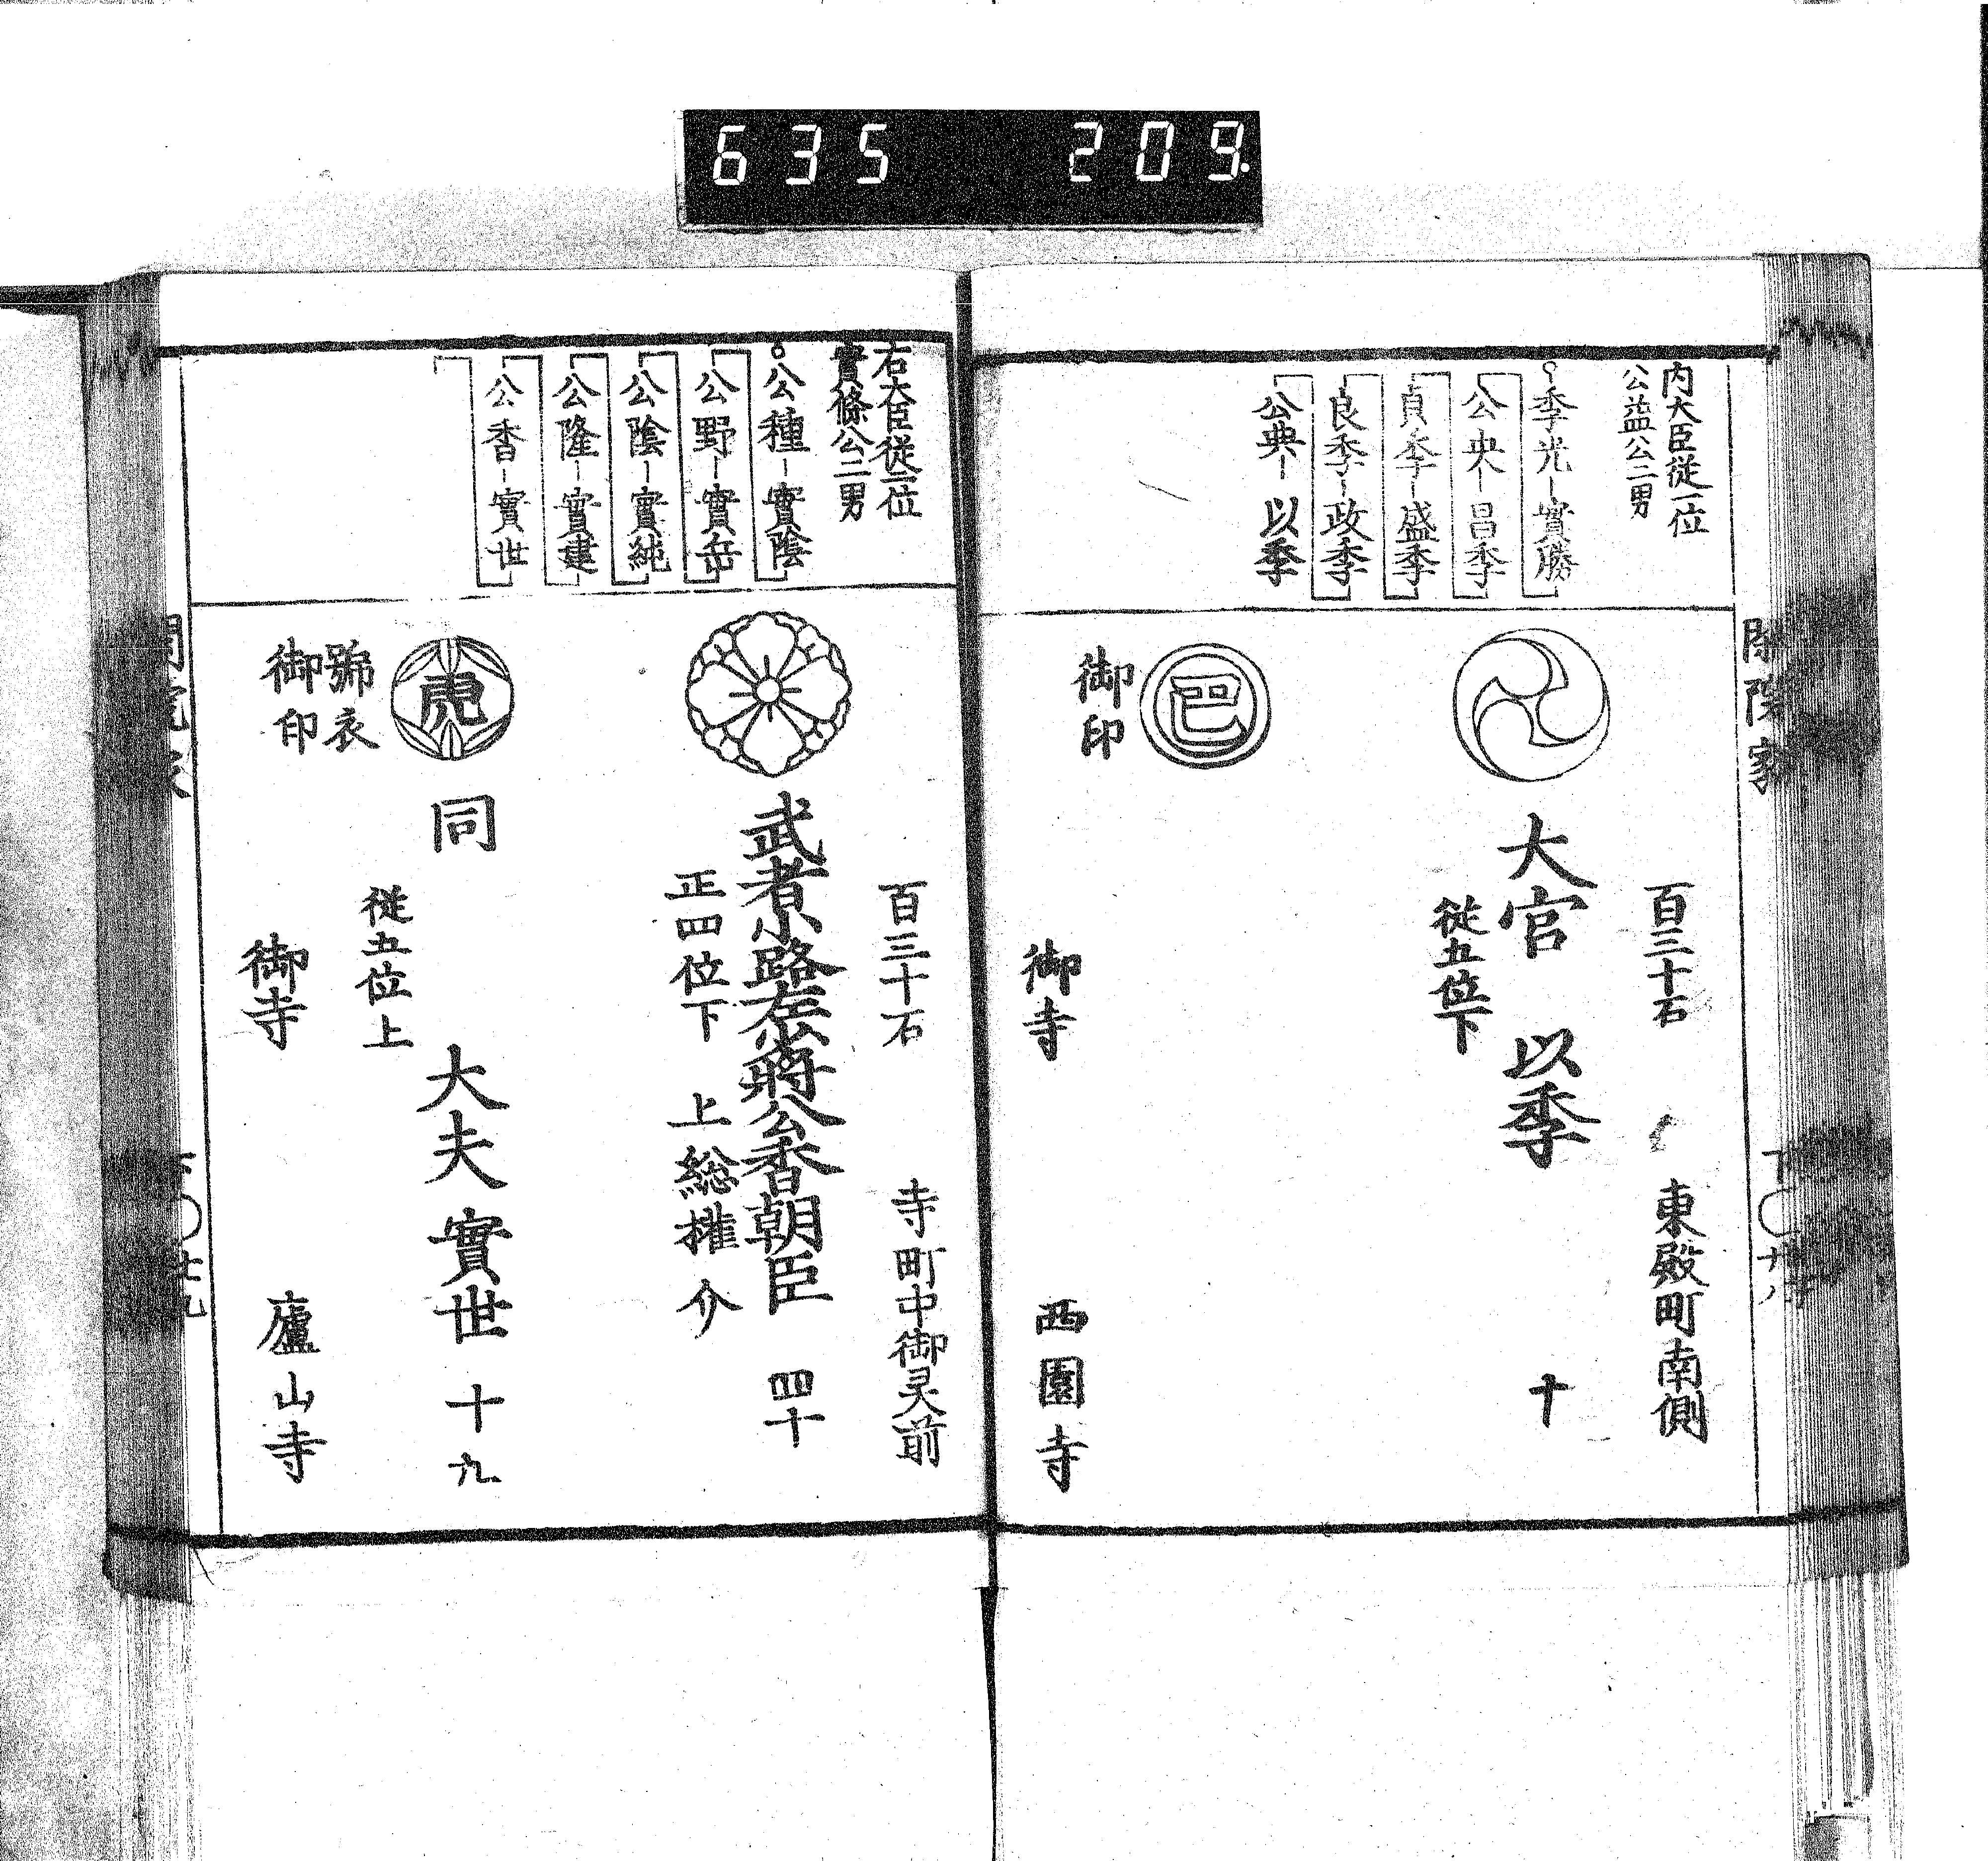 635 209.
内大臣従一位
公益公二男
季光-實勝
公央-昌季
貞季-盛季
良季-政季
公典-以季
百三十石 東殿町南側
大宮 以季 十
従五位下
巴
御印
御寺 西園寺
右大臣従一位
實條公二男
公種-實陰
公野-實岳
公陰-實純
公隆-實建
公香-實世
百三十石 寺町中御灵前
武者小路左少將公香朝臣 四十
正四位下 上総権介
虎
號衣
御印
同 大夫 實世 十九
従五位上
御寺 廬山寺